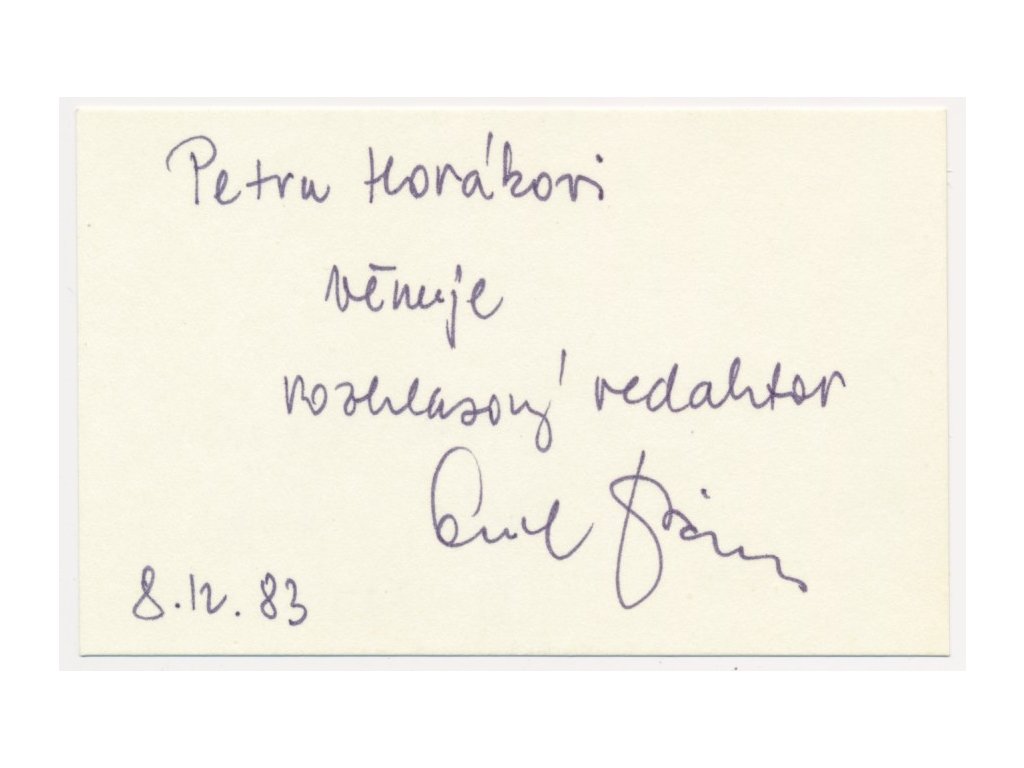 Petru Horákovi
věnuje
rozhlasový redaktor
Emil
8.12.83